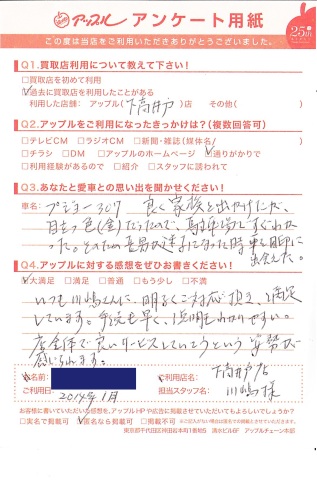 アップル アンケート用紙
25th
この度は当店をご利用いただきありがとうございました。
Q1.買取店利用について教えて下さい!
□買取店を初めて利用
□過去に買取店を利用したことがある
利用した店舗: アップル(下高井戸)店 その他( )
Q2.アップルをご利用になったきっかけは?(複数回答可)
□テレビCM □ラジオCM □新聞・雑誌(媒体名 )
□チラシ □DM □アップルのホームページ □通りがかりで
□利用経験があるので □紹介 □スタッフに誘われて
Q3.あなたと愛車との思い出を聞かせください!
車名: プジョー307 良く家族と出かけたが、
目立つ色(金)だったので、駐車場ですぐわかった。
Q4.アップルに対する感想をぜひお書きください!
□大満足 □満足 □普通 □もう少し □不満
いつも川嶋さんに、明るくご対応頂き、満足
しています。手続も早く、説明もわかりやすい。
店全体で良いサービスしていこうという姿勢が
感じられます。
お名前:
ご利用店名: 下高井戸店
ご利用日: 2014年1月
担当スタッフ名: 川嶋様
お客様に書いていただいた感想を、アップルHPや広告に掲載させていただいてもよろしいでしょうか?
□実名で掲載可 □匿名なら掲載可 □掲載不可